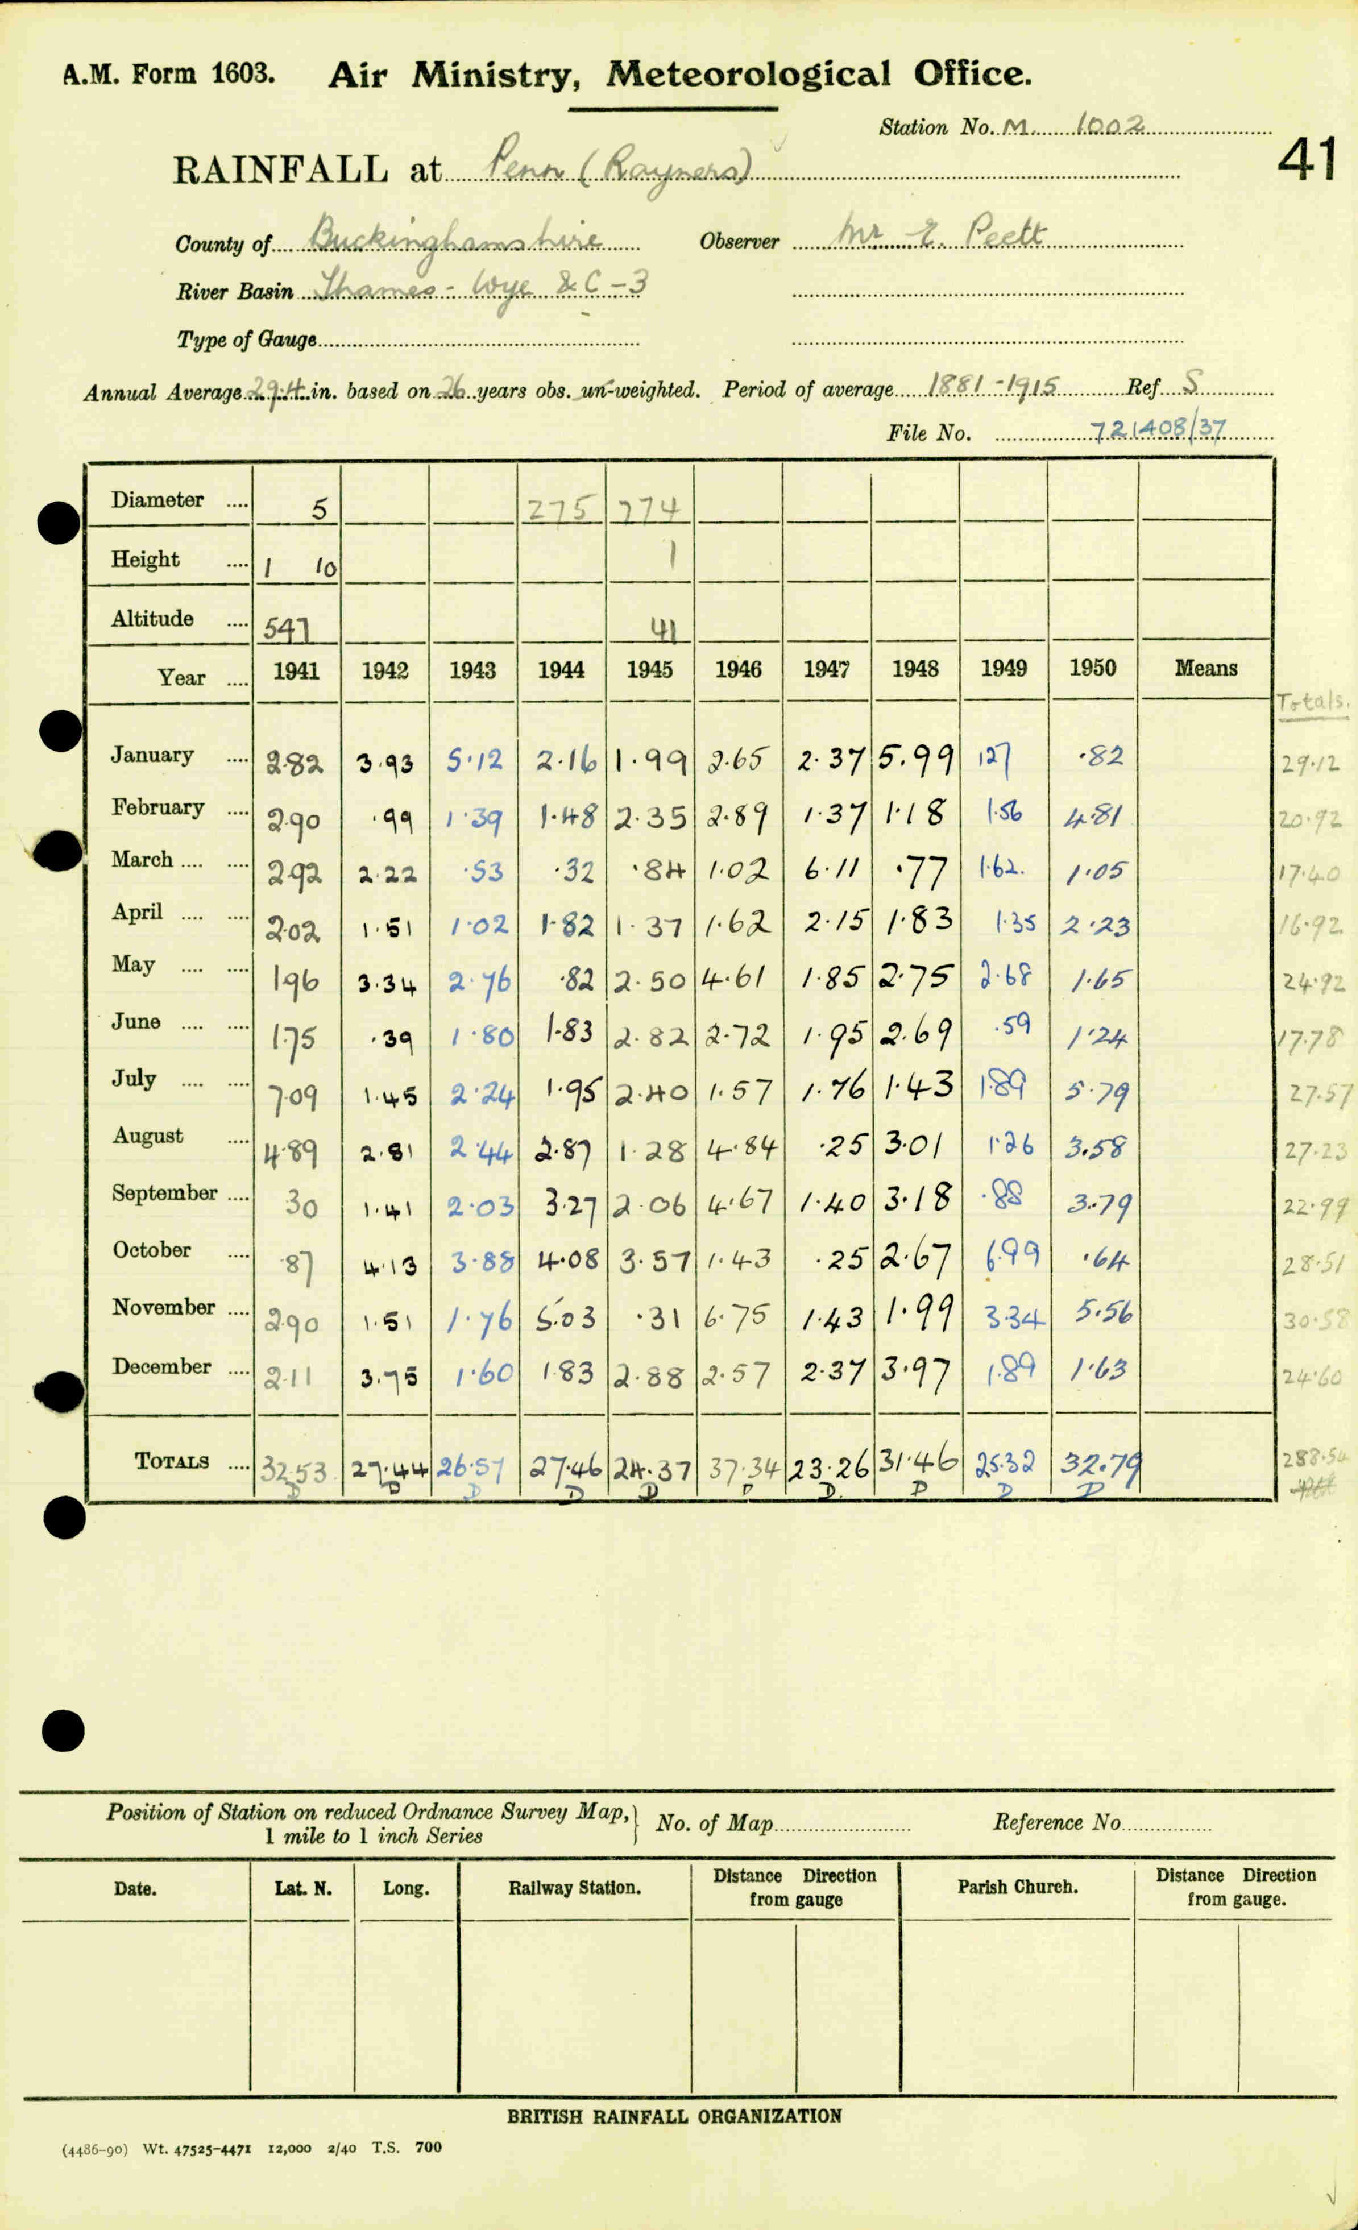 A.M. Form 1603. Air Ministry, Meteorological Office.
Station No. M. 1002
41
RAINFALL at Penn (Rayners)
County of Buckinghamshire Observer Mr E. Peett
River Basin Thames - Wye & C - 3
Type of Gauge
Annual Average 29.4 in. based on 26 years obs. un-weighted. Period of average 1881-1915 Ref. S
File No. 721408/37
Diameter .... 5 275 274
Height .... 1 10 1
Altitude .... 547 41
Year .... 1941 1942 1943 1944 1945 1946 1947 1948 1949 1950 Means
Totals.
January .... 2.82 3.93 5.12 2.16 1.99 2.65 2.37 5.99 127 .82 29.12
February .... 2.90 .99 1.39 1.48 2.35 2.89 1.37 1.18 1.56 4.81 20.92
March .... .... 2.92 2.22 .53 .32 .84 1.02 6.11 .77 1.62. 1.05 17.40
April .... .... 2.02 1.51 1.02 1.82 1.37 1.62 2.15 1.83 1.35 2.23 16.92
May .... .... 1.96 3.34 2.76 .82 2.50 4.61 1.85 2.75 2.68 1.65 24.92
June .... .... 1.75 .39 1.80 1.83 2.82 2.72 1.95 2.69 .59 1.24 17.78
July .... .... 7.09 1.45 2.24 1.95 2.40 1.57 1.76 1.43 1.89 5.79 27.57
August .... 4.89 2.81 2.44 2.87 1.28 4.84 .25 3.01 1.26 3.58 27.23
September .... 30 1.41 2.03 3.27 2.06 4.67 1.40 3.18 .88 3.79 22.99
October .... .87 4.13 3.88 4.08 3.57 1.43 .25 2.67 6.99 .64 28.51
November .... 2.90 1.51 1.76 5.03 .31 6.75 1.43 1.99 3.34 5.56 30.58
December .... 2.11 3.75 1.60 1.83 2.88 2.57 2.37 3.97 1.89 1.63 24.60
TOTALS .... 32.53 27.44 26.57 27.46 24.37 37.34 23.26 31.46 25.32 32.79 288.54
D D D D D D D. D D D
Position of Station on reduced Ordnance Survey Map, 1 mile to 1 inch Series No. of Map Reference No.
Date. Lat. N. Long. Railway Station. Distance Direction from gauge Parish Church. Distance Direction from gauge.
BRITISH RAINFALL ORGANIZATION
(4486-90) Wt. 47525-4471 12,000 2/40 T.S. 700